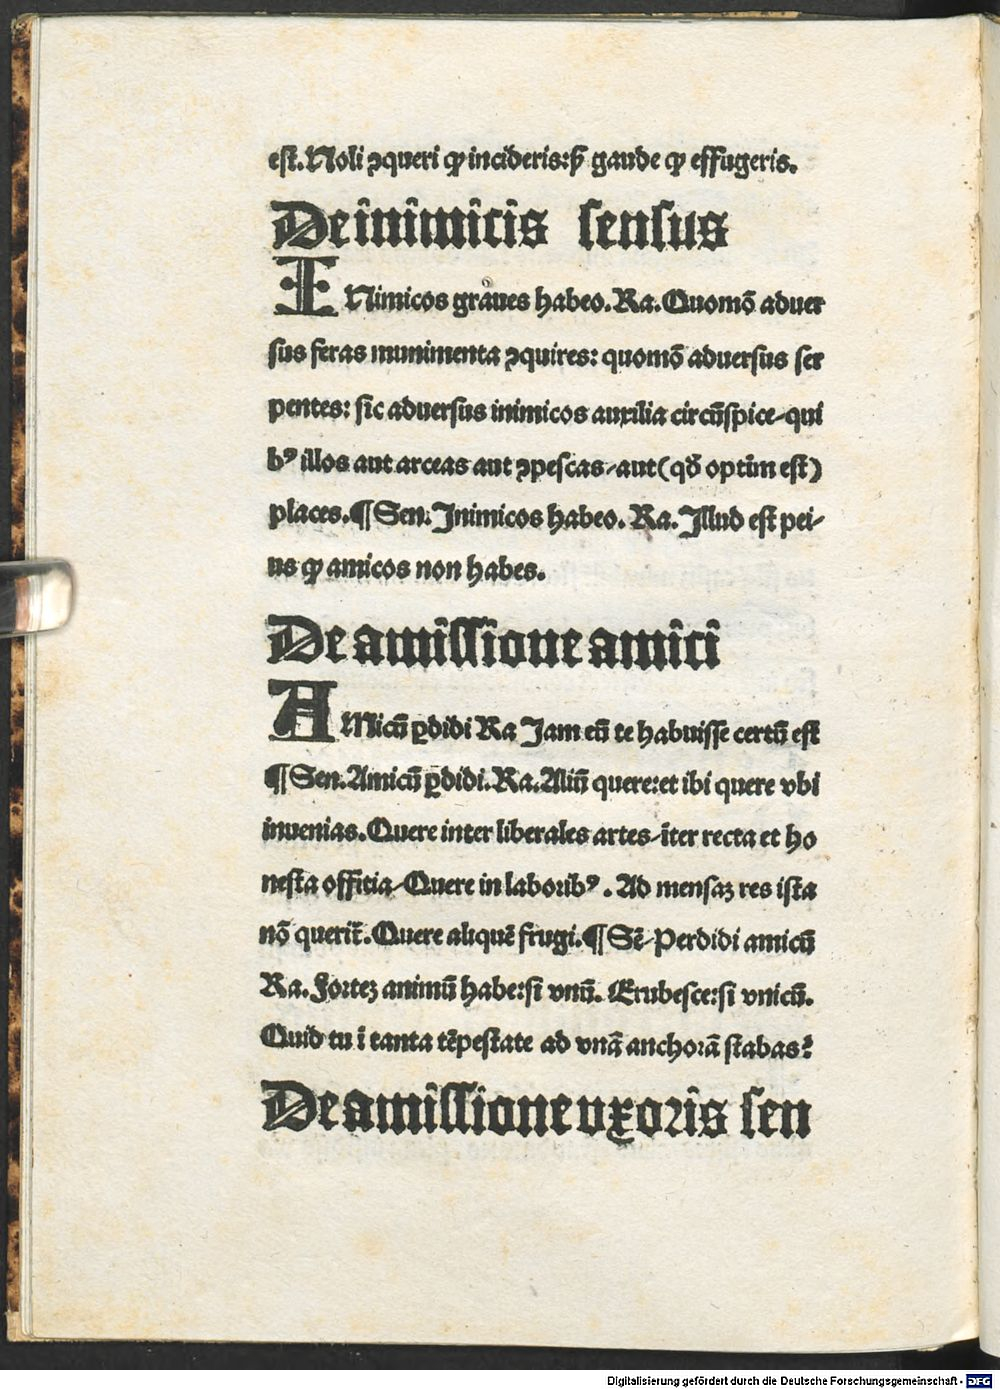 est. Noli ꝯqueri ꝙ incideris: sꝫ gaude ꝙ effugeris.
De inimicis sensus
INimicos graues habeo. Ra. Quomō aduer
sus feras munimenta ꝯquires: quomō aduersus ser
pentes: sic aduersus inimicos auxilia circūspice/ qui
bꝰ illos aut arceas aut ꝯpescas/ aut (qđ optīm est)
places. ¶ Sen. Inimicos habeo. Ra. Illud est pei/
us ꝙ amicos non habes.
De amissione amici
AMicū ꝑdidi Ra Jam eū te habuisse certū est
¶ Sen. Amicū ꝑdidi. Ra. Aliū quere: et ibi quere vbi
inuenias. Quere inter liberales artes/ īter recta et ho
nesta officia/ Quere in laboribꝰ. Ad mensaꝫ res ista
nō querit̄. Quere aliquē frugi. ¶ Sē/ Perdidi amicū
Ra. Forteꝫ animū habe: si vnū. Erubesce: si vnicū.
Quid tu i tanta tēpestate ad vnā anchorā stabas?
De amissione vxoris sen
Digitalisierung gefördert durch die Deutsche Forschungsgemeinschaft - DFG